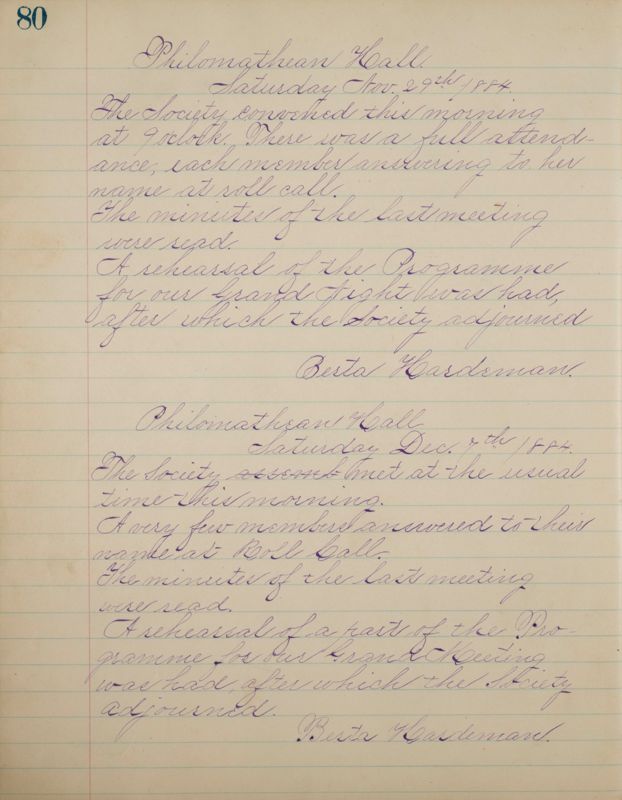 80
Philomathean Hall.
Saturday Nov. 29th, 1884.
The Society convened this morning
at 9 oclock. There was a full attend-
ance, each member answering to her
name at roll call.
The minutes of the last meeting
were read.
A rehearsal of the Programme
for our Grand Night was had,
after which the Society adjourned
Berta Hardeman.
Philomathean Hall
Saturday Dec. 7th 1884.
The Society met at the usual
time this morning.
A very few members answered to their
name at Roll Call.
The minutes of the last meeting
were read.
A rehearsal of a part of the Pro-
gramme for our Grand Meeting
was had, after which the Society
adjourned.
Berta Hardeman.